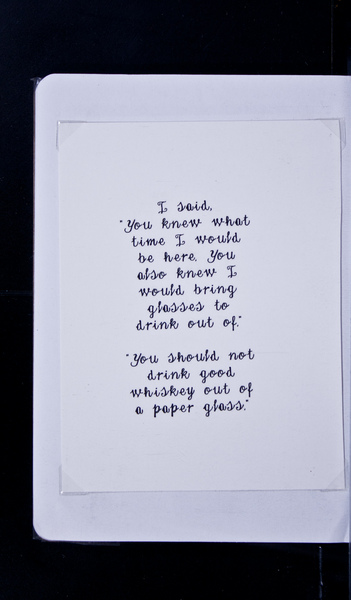 I said,
"You knew what
time I would
be here. You
also knew I
would bring
glasses to
drink out of."
"You should not
drink good
whiskey out of
a paper glass."